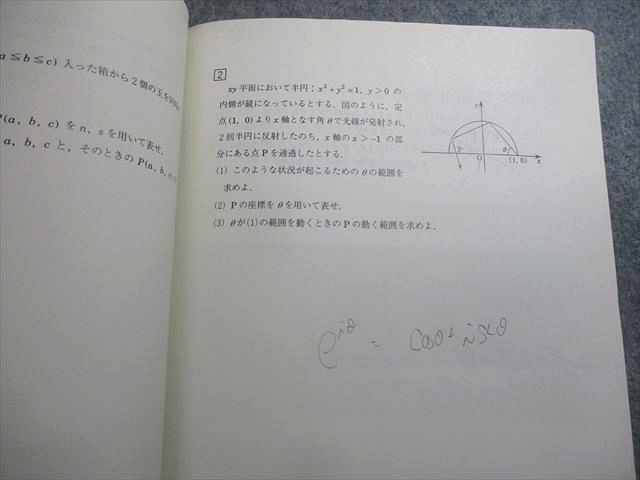 a≦b≦c) 入った箱から2個の玉を同時に
(a, b, c) を n, s を用いて表せ.
a, b, c と, そのときの P(a, b, c)
2
xy 平面において半円; x²+y²=1, y>0 の
内側が鏡になっているとする. 図のように, 定
点(1, 0)より x 軸となす角 θ で光線が発射され,
2回半円に反射したのち, x 軸の x>-1 の部
分にある点 P を通過したとする.
(1) このような状況が起こるための θ の範囲を
求めよ.
(2) P の座標を θ を用いて表せ.
(3) θ が(1)の範囲を動くときの P の動く範囲を求めよ.
y
P
O
θ
(1, 0)
x
e^{iθ} = cosθ + i sinθ